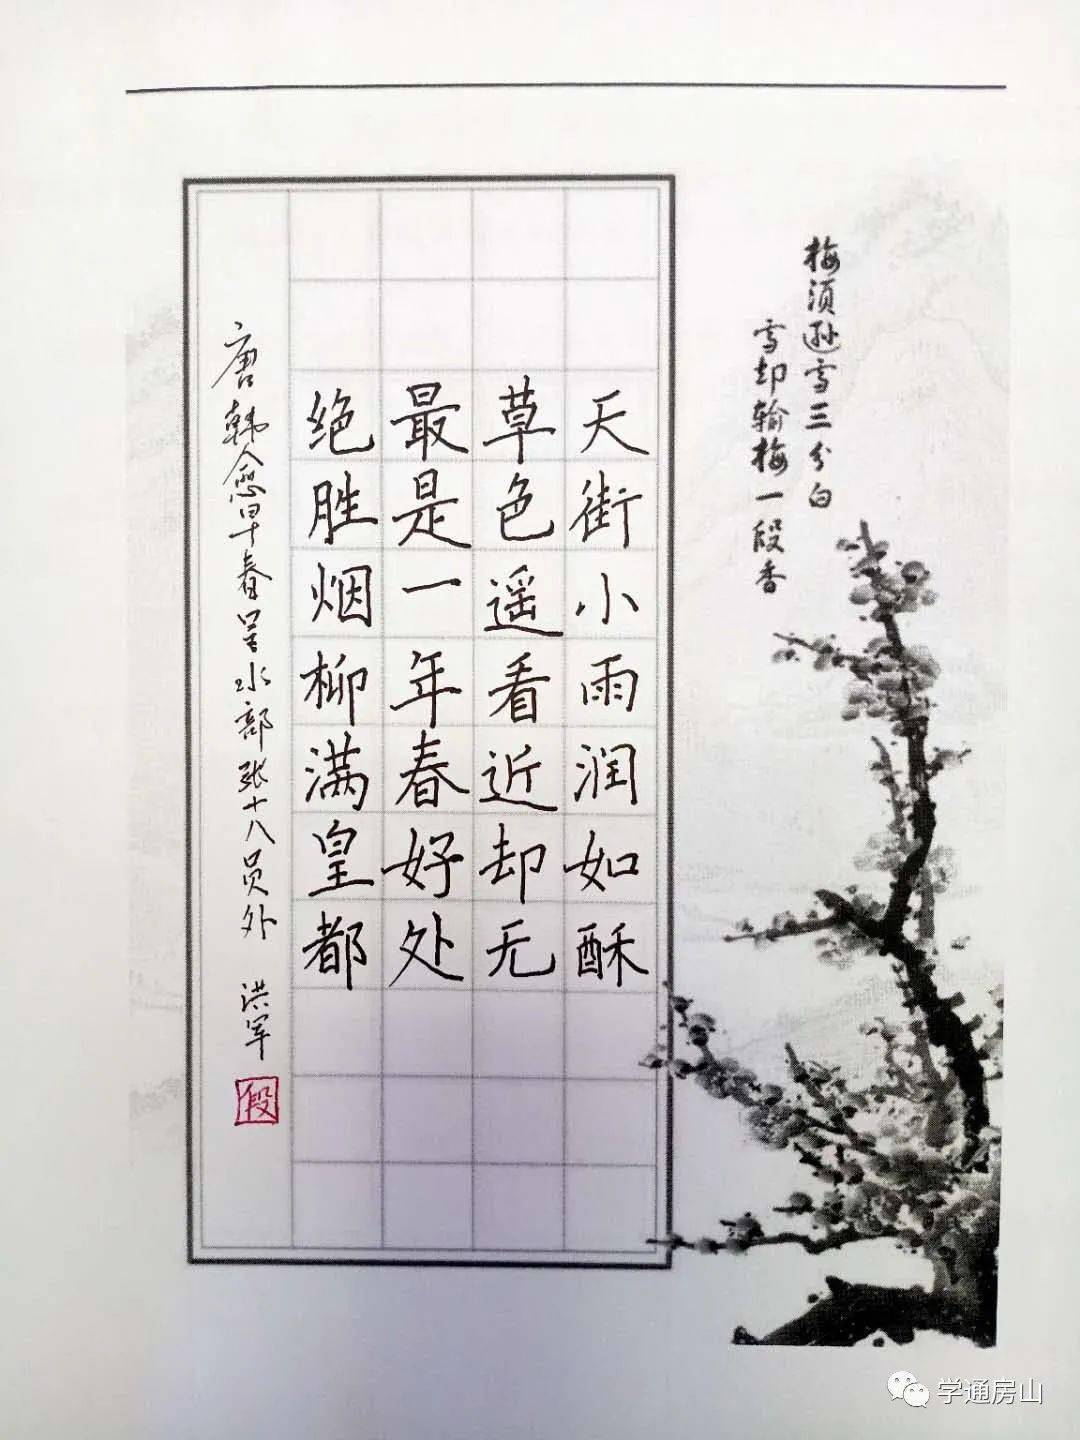 梅须逊雪三分白
雪却输梅一段香
天街小雨润如酥
草色遥看近却无
最是一年春好处
绝胜烟柳满皇都
唐韩愈早春呈水部张十八员外 洪军
段
学通房山